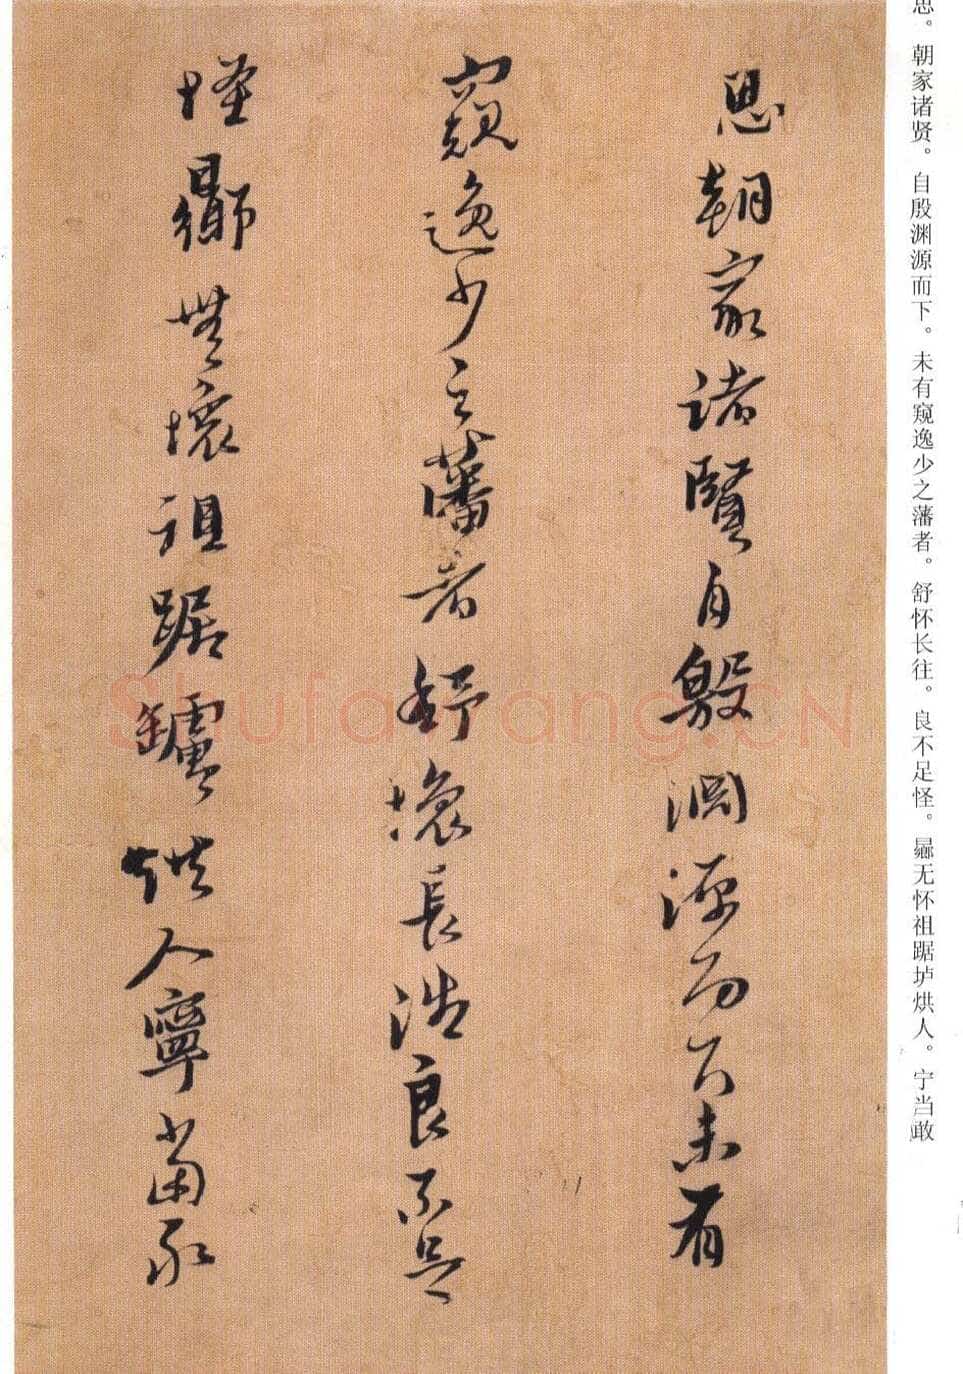 思。朝家诸贤。自殷渊源而下。未有窥逸少之藩者。舒怀长往。良不足怪。曏无怀祖踞垆烘人。宁当敢
思朝家諸賢自殷淵源而下未有
窺逸少之藩者舒懷長往良不足
怪曏無懷祖踞鑪烘人寧當敢
Shufawang.CN